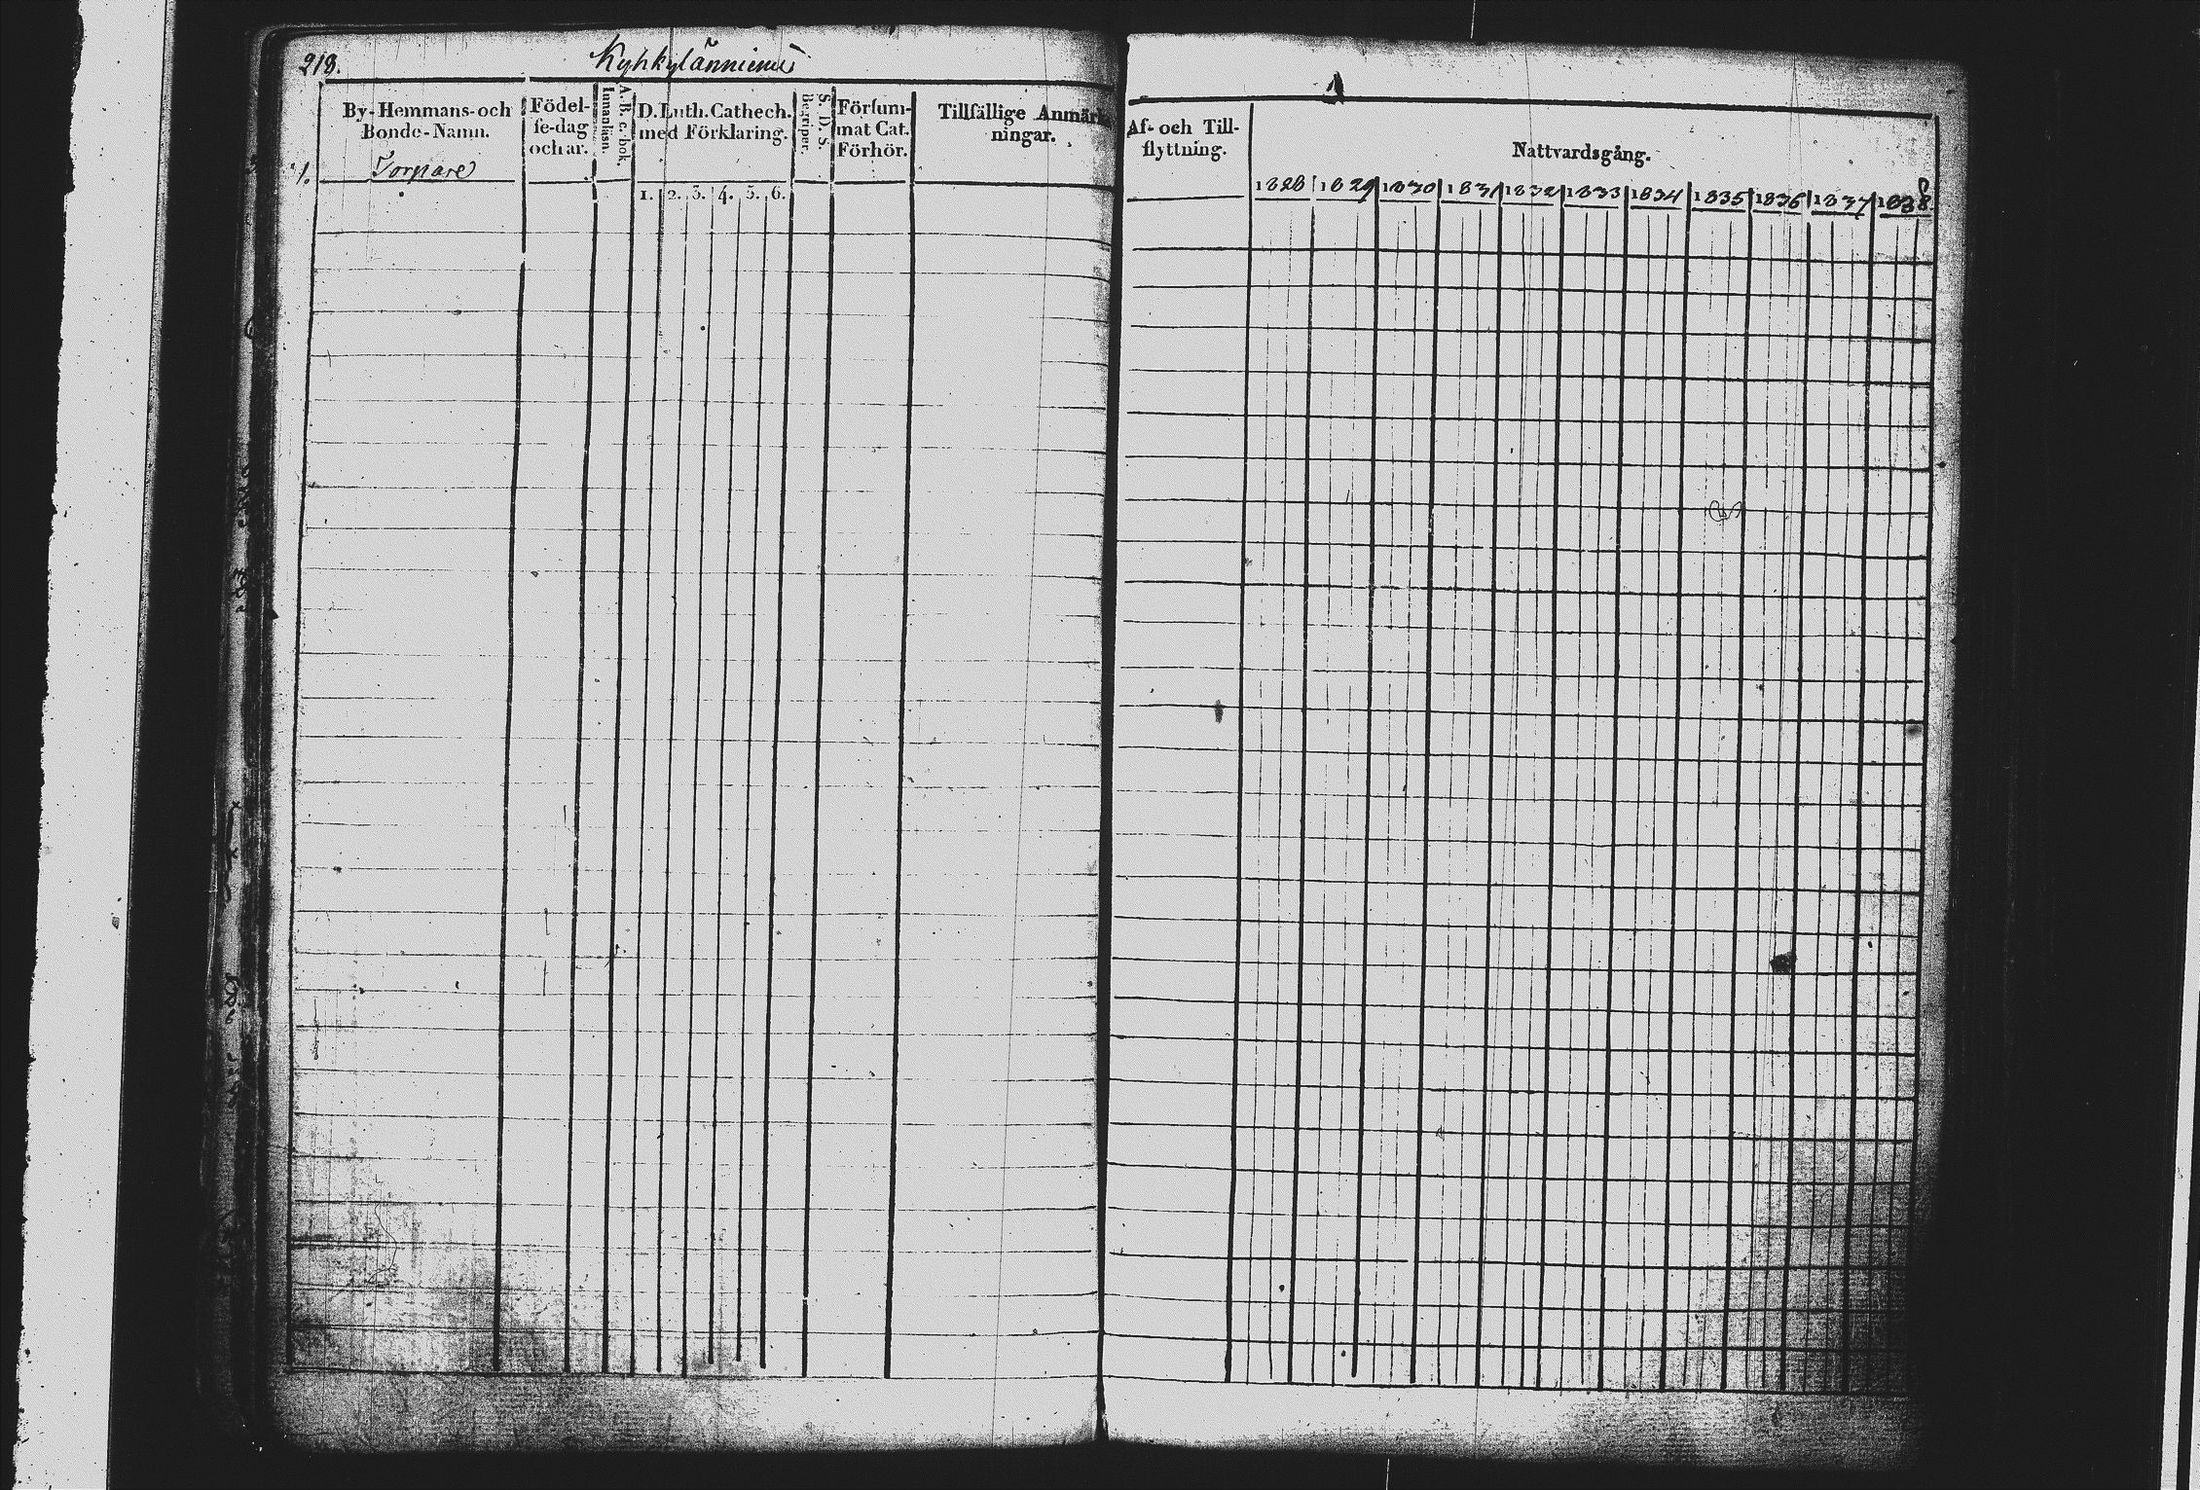 218.
Kyhkylänniemi
By-Hemmans-och
Bonde-Namn.
Födel-
se-dag
och ar.
A. B. c-bok.
Innanläsn.
D. Luth. Cathech.
med Förklaring.
S. D. S.
Begriper.
Försum-
mat Cat.
Förhör.
Tillfällige Anmärk
ningar.
1.
Torpare
1. 2. 3. 4. 5. 6.
Af- och Till-
flyttning.
Nattvardsgång.
1828 1829 1830 1831 1832 1833 1834 1835 1836 1837 1838